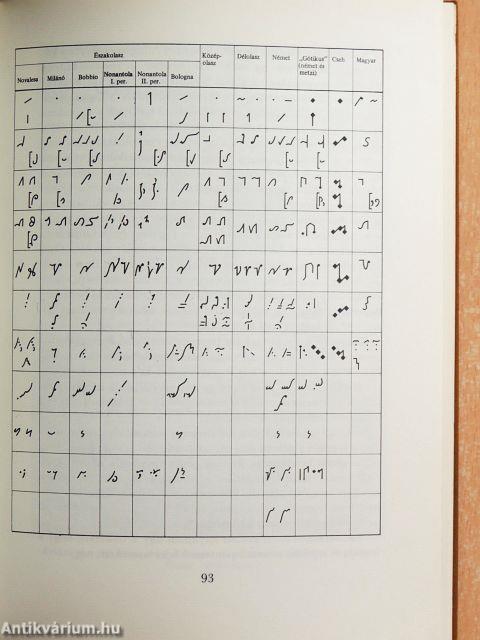 Északolasz
Közép-
olasz
Délolasz
Német
„Gótikus”
(német és
metzi)
Cseh
Magyar
Novalesa
Milánó
Bobbio
Nonantola
I. per.
Nonantola
II. per.
Bologna
93
Antikvárium.hu